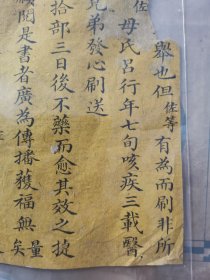 舉也但佐等有為而刷非所
佐母氏呂行年七旬咳疾三載醫
兄弟發心刷送
拾部三日後不藥而愈其效之捷
閱是書者廣為傳播獲福無量矣